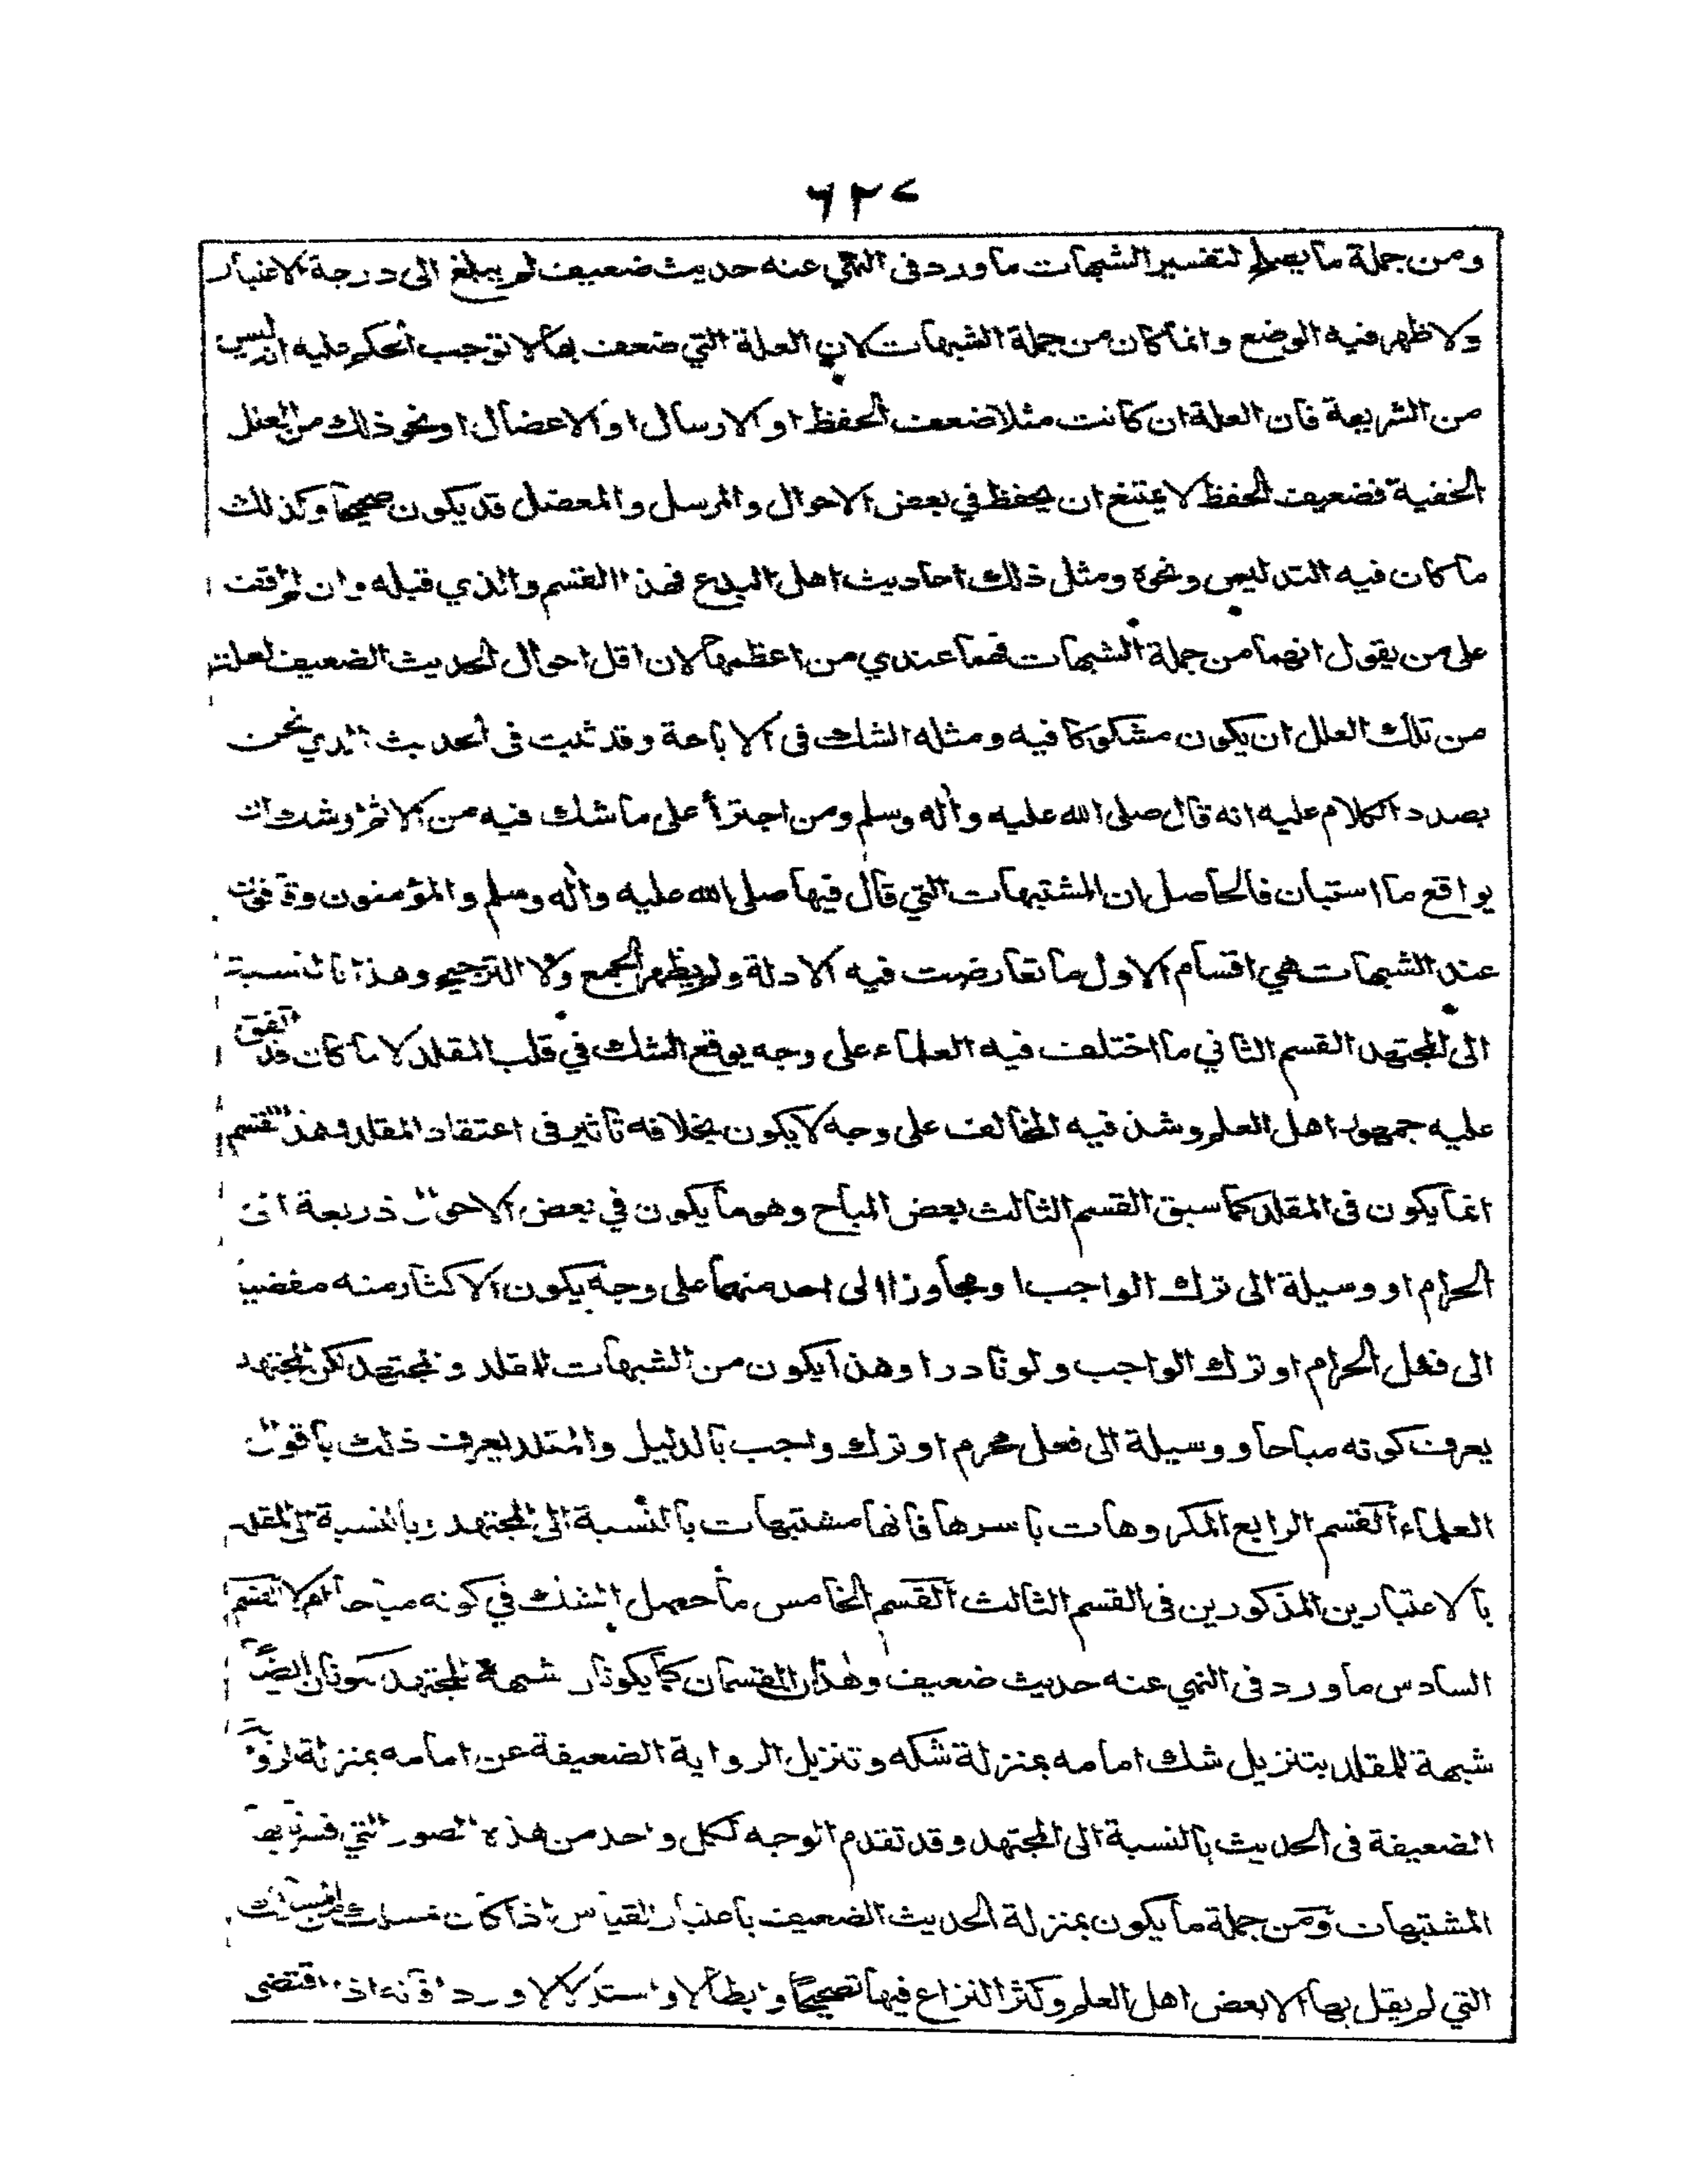 ٦٢٧
ومن جملة ما يصلح لتفسير الشبهات ما ورد فى النهي عنه حديث ضعيف لم يبلغ الى درجة الاعتبار
ولا ظهر فيه الوضع وانما كان من جملة الشبهات لان العلة التي ضعف بها لا توجب الحكم عليه انه ليس
من الشريعة فان العلة ان كانت مثلا ضعف الحفظ او الارسال او الاعضال او نحو ذلك من العلل
الخفية فضعيف الحفظ لا يمتنع ان يحفظ في بعض الاحوال والمرسل والمعضل قد يكون صحيحا وكذلك
ما كان فيه التدليس ونحوه ومثل ذلك احاديث اهل البدع فهذا القسم والذي قبله وان لم اقف
على من يقول انهما من جملة الشبهات فهما عندي من اعظمها لان اقل احوال الحديث الضعيف لعلة
من تلك العلل ان يكون مشكوكا فيه ومثله الشك فى الاباحة وقد ثبت فى الحديث الذي نحن
بصدد الكلام عليه انه قال صلى الله عليه وأله وسلم ومن اجترأ على ما شك فيه من الاثم اوشك ان
يواقع ما استبان فالحاصل ان المشتبهات التي قال فيها صلى الله عليه وأله وسلم والمؤمنون وقافون
عند الشبهات هي اقسام الاول ما تعارضت فيه الادلة ولم يظهر الجمع ولا الترجيح وهذا بالنسبة
الى المجتهد القسم الثاني ما اختلف فيه العلماء على وجه يوقع الشك في قلب المقلد لا ما كان قد اتفق
عليه جمهور اهل العلم وشذ فيه المخالف على وجه لا يكون بخلافه تاثير فى اعتقاد المقلد وهذا القسم
انما يكون فى المقلد كما سبق القسم الثالث بعض المباح وهو ما يكون في بعض الاحوال ذريعة الى
الحرام او وسيلة الى ترك الواجب او مجاوزا الى احد منهما على وجه يكون الاكثار منه مفضيا
الى فعل الحرام او ترك الواجب ولو نادرا وهذا يكون من الشبهات للمقلد والمجتهد لكن المجتهد
يعرف كونه مباحا ووسيلة الى فعل محرم او ترك واجب بالدليل والمقلد يعرف ذلك باقوال
العلماء القسم الرابع المكروهات باسرها فانها مشتبهات بالنسبة الى المجتهد وبالنسبة الى المقلد
بالاعتبارين المذكورين فى القسم الثالث القسم الخامس ما حصل الشك في كونه مباحا ام لا القسم
السادس ما ورد فى النهي عنه حديث ضعيف وهذان القسمان كما يكونان شبهة للمجتهد يكونان ايضا
شبهة للمقلد بتنزيل شك امامه بمنزلة شكه وتنزيل الرواية الضعيفة عن امامه بمنزلة الرواية
الضعيفة فى الحديث بالنسبة الى المجتهد وقد تقدم الوجه لكل واحد من هذه الصور التي فسرنا بها
المشتبهات ومن جملة ما يكون بمنزلة الحديث الضعيف باعتبار القياس اذا كان بمسلك من المسالك
التي لم يقل بها الا بعض اهل العلم وكثر النزاع فيها تصحيحا وابطالا واستدلالا وردا فانه اذا اقتضى